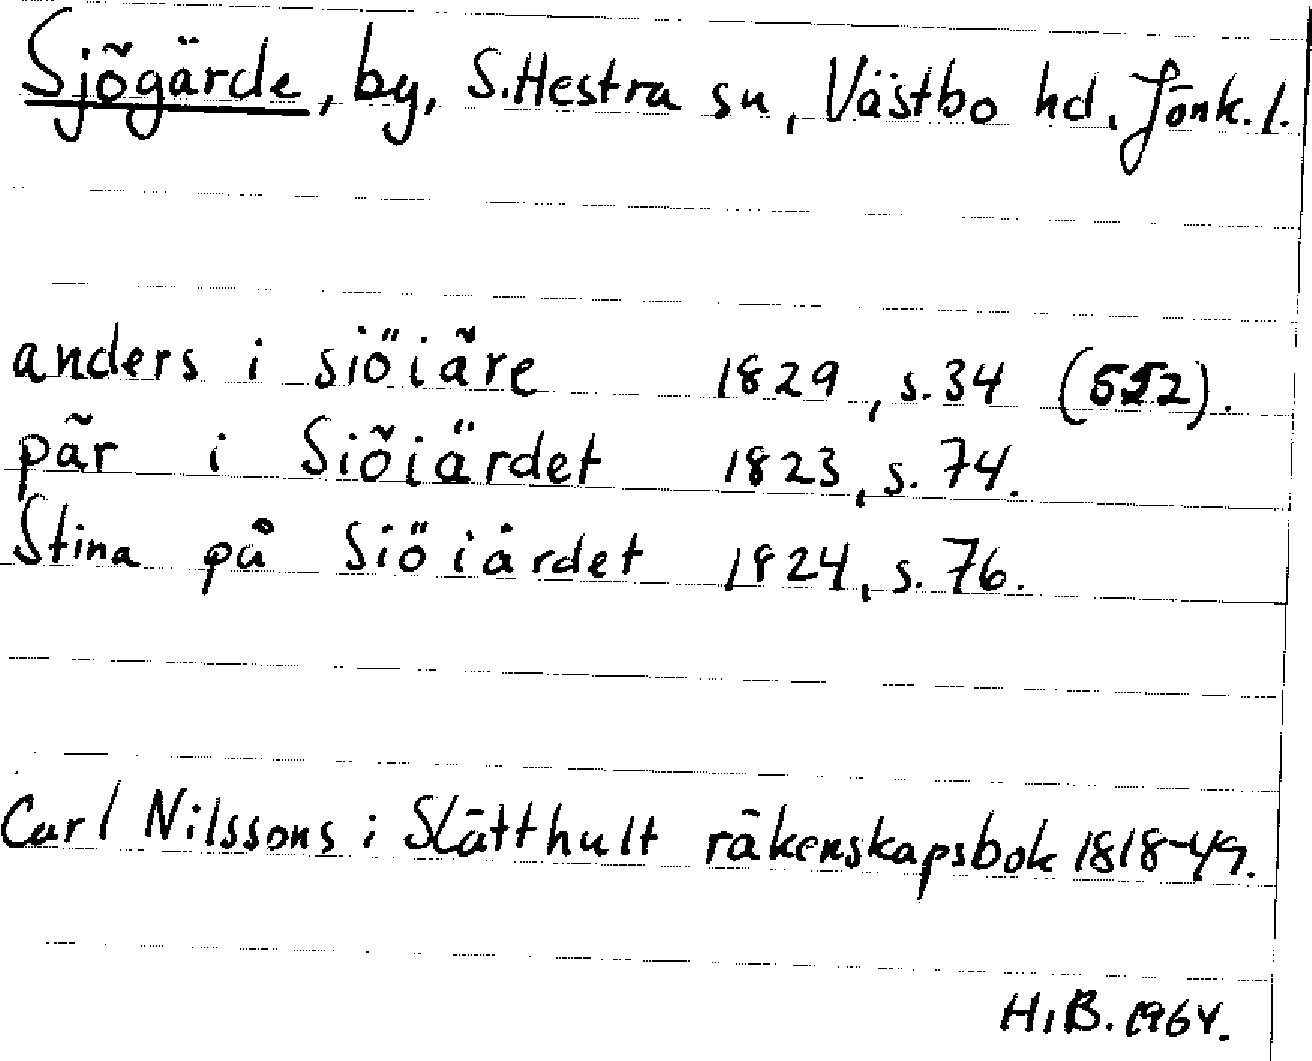 Sjögärde, by, S. Hestra sn, Västbo hd. Jönk. l.
anders i siöiäre 1829, s. 34 (552).
pär i Siöiärdet 1823, s. 74.
Stina på Siöiärdet 1824, s. 76.
Carl Nilssons i Slätthult räkenskapsbok 1818-49.
H, B. 1964.